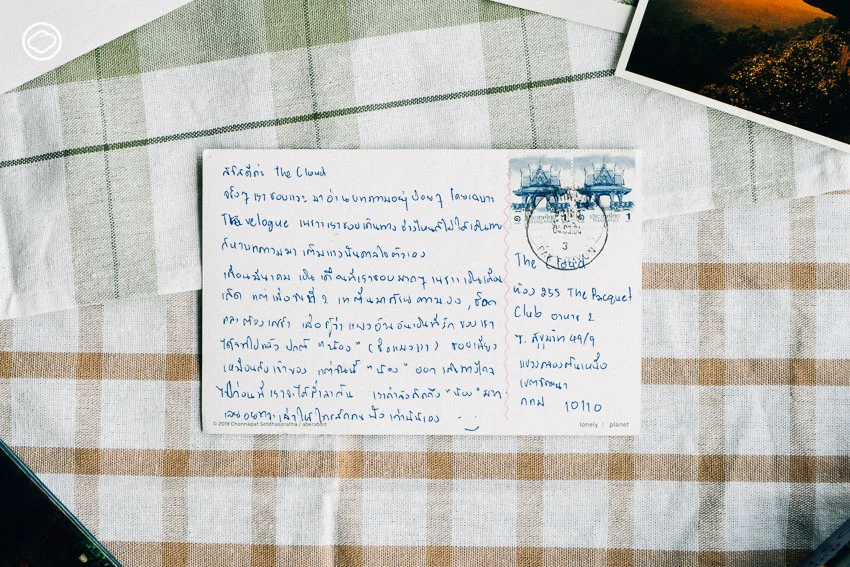 สวัสดีค่ะ The Cloud
จริงๆ เราชอบแวะมาอ่านบทความอยู่บ่อยๆ โดยเฉพาะ
Travelogue เพราะเราชอบเดินทาง ช่วงไหนที่ไม่ได้เดินทาง
ก็หาบทความมาเติมแรงบันดาลใจตัวเอง
เดือนมีนาคม เป็นเดือนที่เราชอบมากๆ เพราะเป็นเดือน
เกิด แต่เมื่อวันที่ 2 เท
กลายต้องเศร้า เมื่อรู้ว่า แมวอ้วนอันเป็นที่รัก ของเรา
ได้จากไปแล้ว ปกติ "น้อง" (ชื่อแมวเรา) ชอบเที่ยว
เหมือนกับเจ้าของ แต่วันนี้ "น้อง" ออกเดินทางไกล
ไปก่อนที่เราจะได้ร่ำลากัน เรากำลังคิดถึง "น้อง" มาก
เลยอยากจะเล่าให้ใครสักคน ฟัง เท่านั้นเอง
© 2019 Chonnapat Setdhasoratha / aberabbit
ประเทศไทย
๑ 1
ประเทศไทย
1
04.03.64
3
The Cloud
ห้อง 255 The Racquet
Club อาคาร 2
ซ. สุขุมวิท 49/9
แขวงคลองตันเหนือ
เขตวัฒนา
กทม 10110
lonely | planet